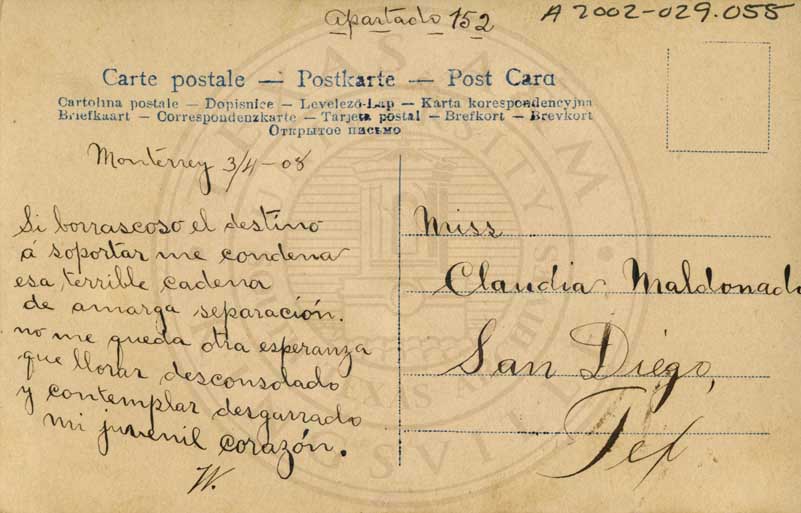 apartado 152
A 2002-029.058
Carte postale — Postkarte — Post Card
Cartolina postale — Dopisnice — Levelező-Lap — Karta korespondencyjna
Briefkaart — Correspondenzkarte — Tarjeta postal — Brefkort — Brevkort
Открытое письмо
Monterrey 3/4-08
Si borrascoso el destino
á soportar me condena
esa terrible cadena
de amarga separación.
no me queda otra esperanza
que llorar desconsolado
y contemplar desgarrado
mi juvenil corazón.
W.
Miss
Claudia Maldonado
San Diégo,
Tex